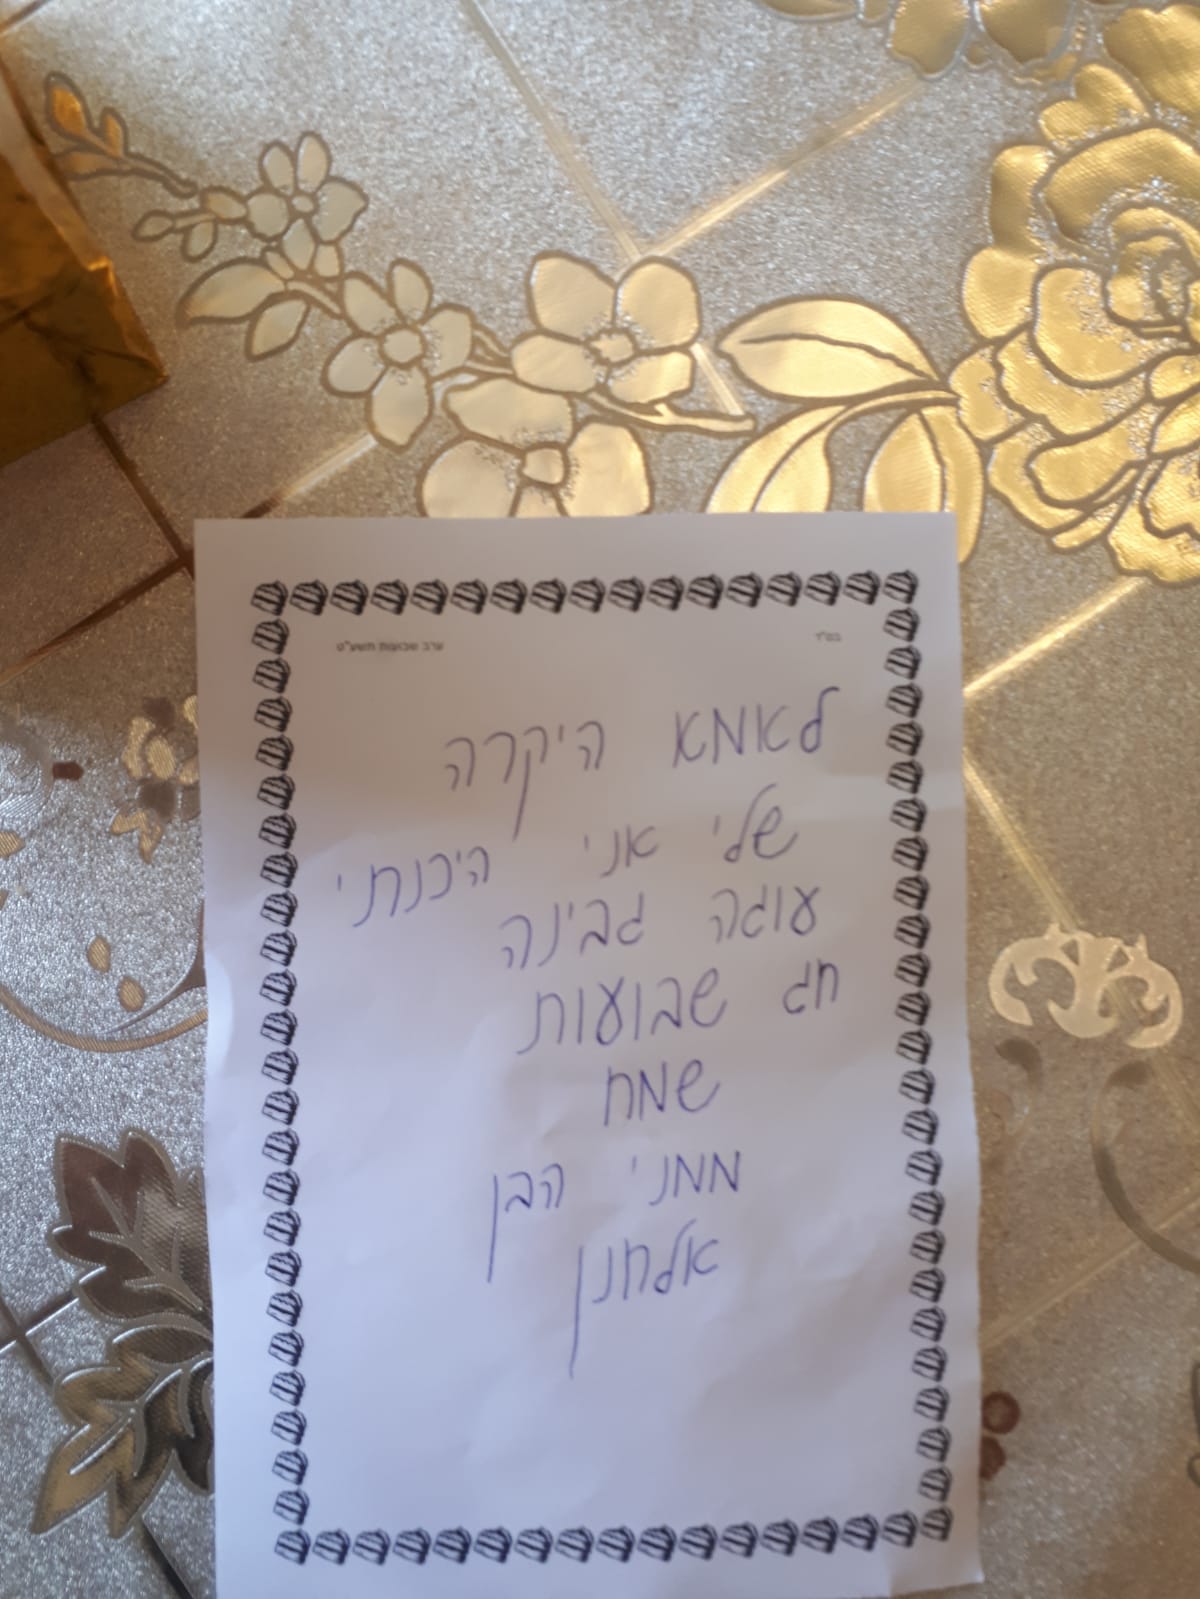 בס"ד
ערב שבועות תשע"ט
לאמא היקרה
שלי אני היכנתי
עוגה גבינה
חג שבועות
שמח
ממני הבן
אלחנן